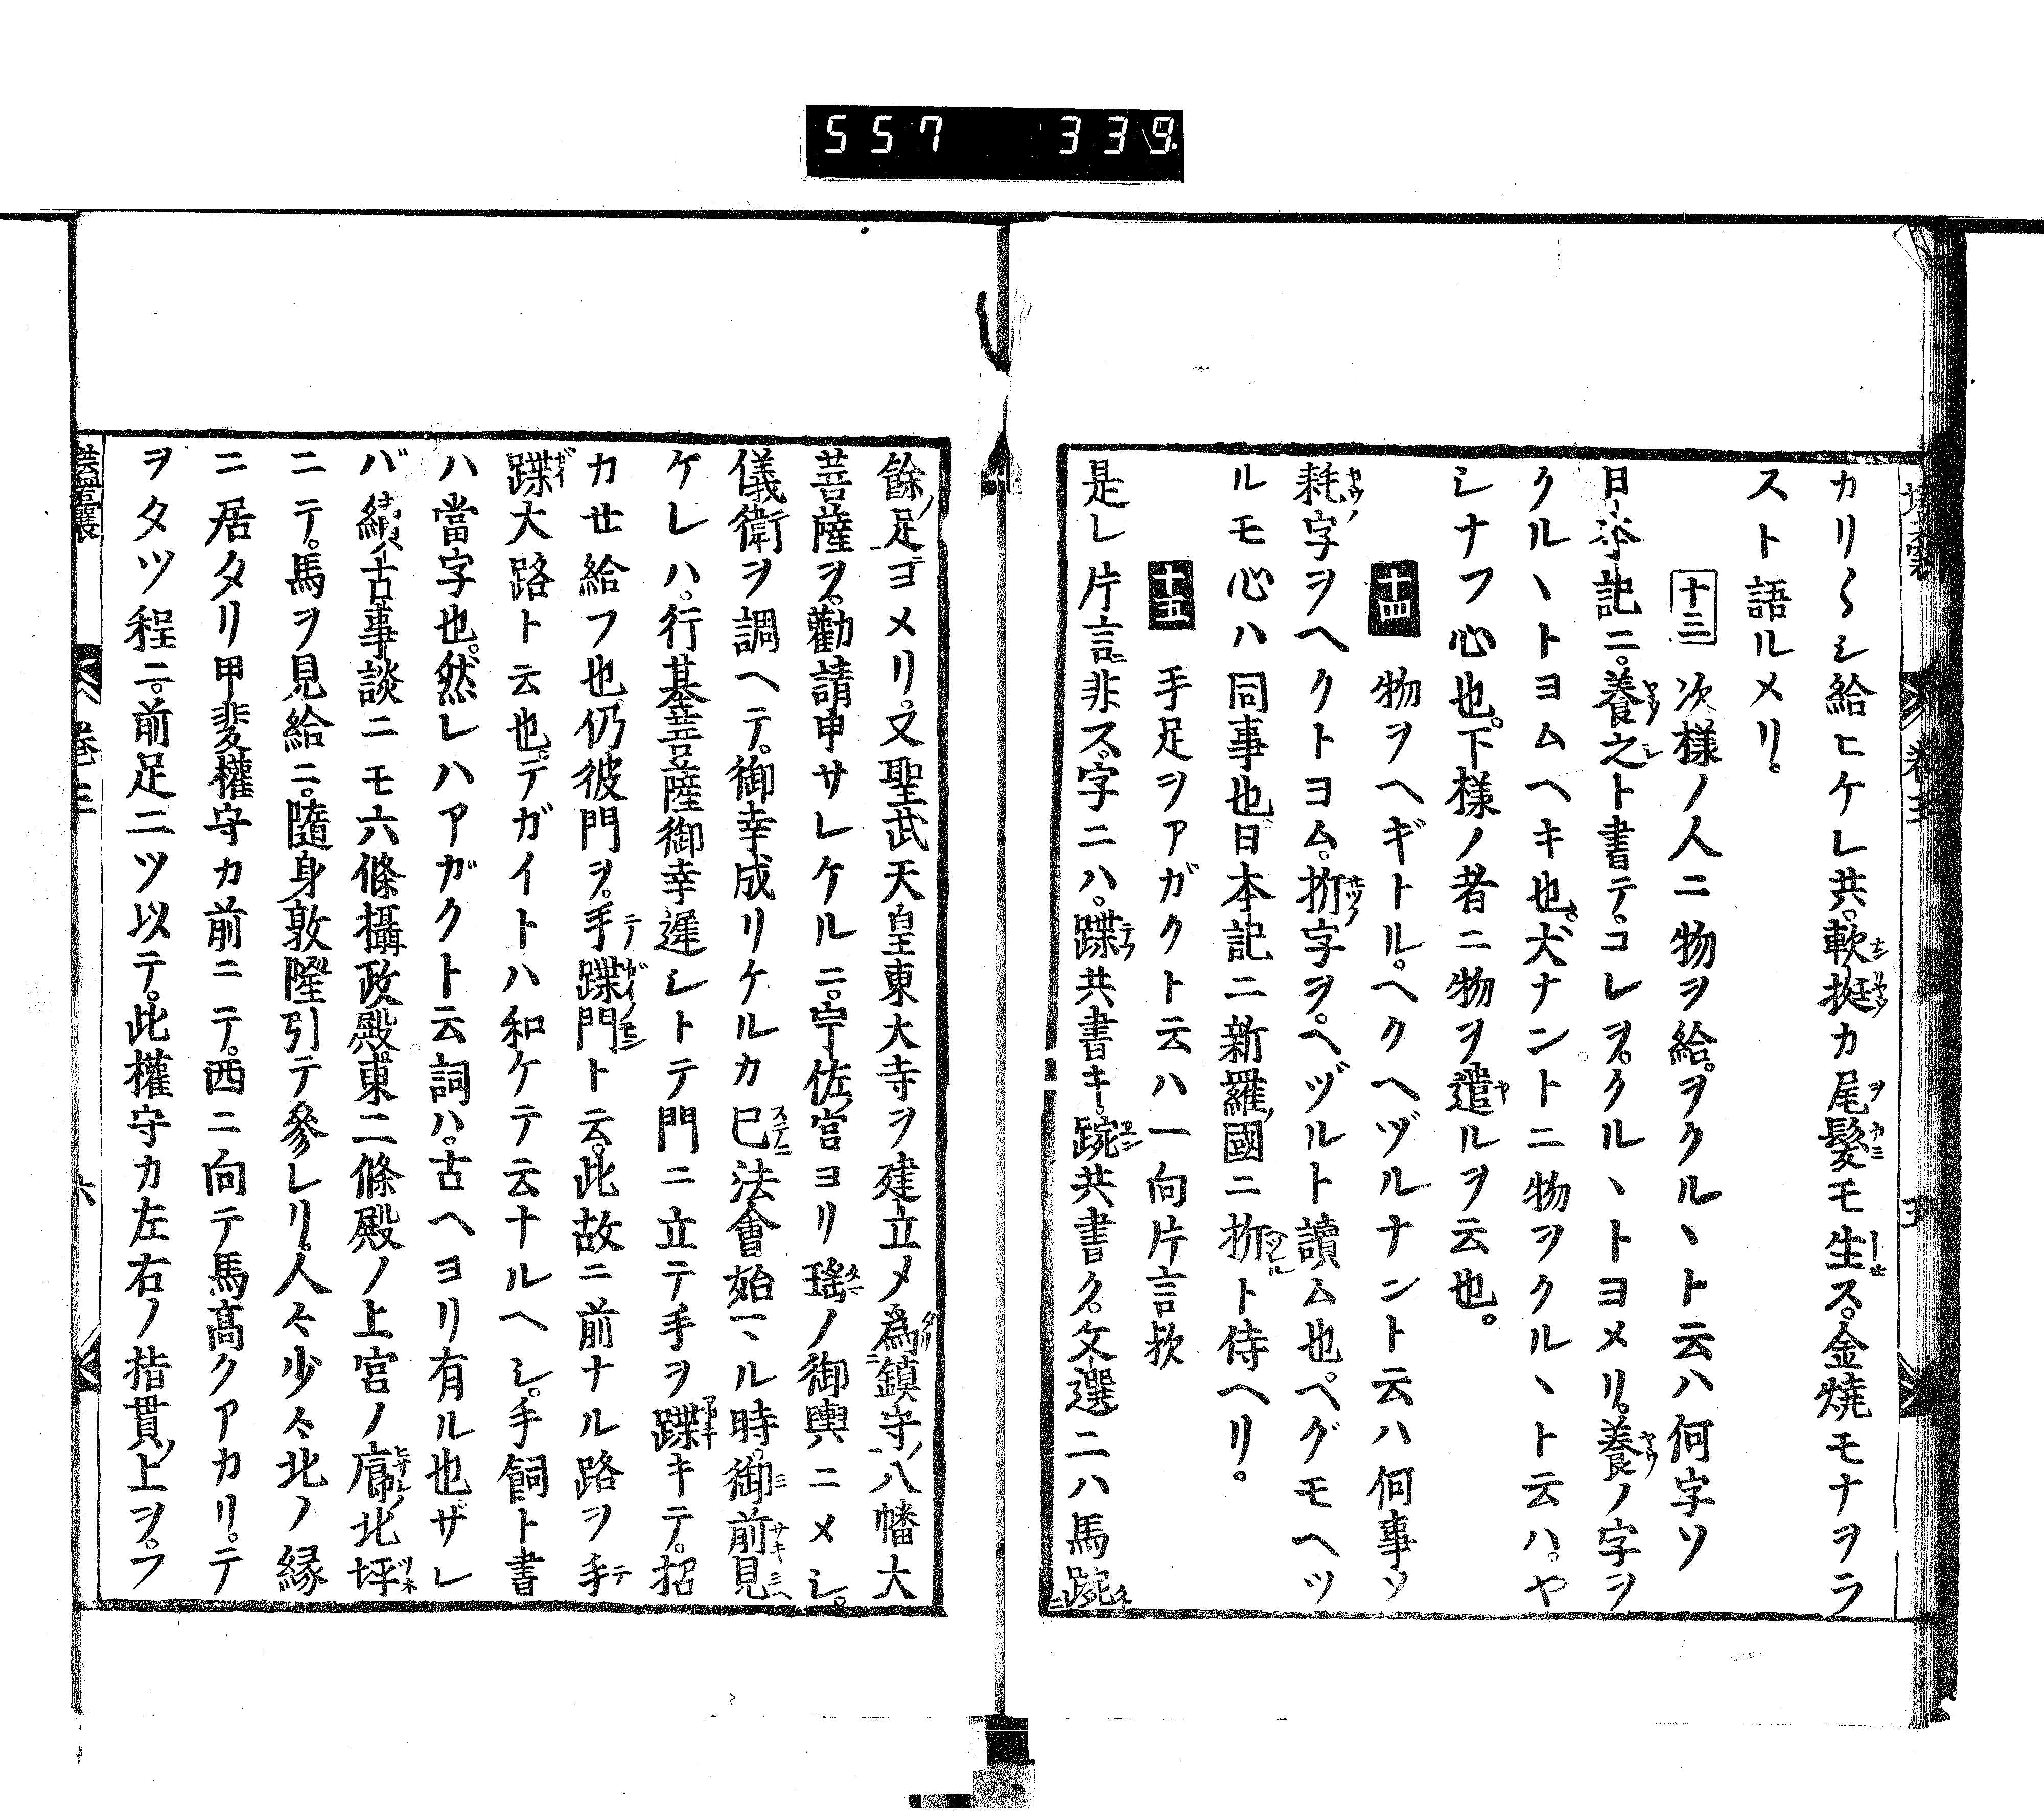 557 339
カリ〱シ給ヒケレ共。軟挺カ尾髮モ生ス。金燒モナヲラ
スト語ルメリ。
十三 次樣ノ人ニ物ヲ給。ヲクルヽト云ハ何字ソ
日本記ニ。養之ト書テ。コレヲ。クルヽトヨメリ。養ノ字ヲ
クルヽトヨムヘキ也。犬ナントニ物ヲクルヽト云ハ。ヤ
シナフ心也。下樣ノ者ニ物ヲ遣ルヲ云也。
十四 物ヲヘギトル。ヘクヘヅルナント云ハ何事ソ
耗字ヲヘクトヨム。折字ヲ。ヘヅルト讀ム也。ヘグモヘツ
ルモ心ハ同事也日本記ニ新羅國ニ折ト侍ヘリ。
十五 手足ヲアガクト云ハ一向片言歟
是レ片言ニ非ス。字ニハ。蹀共書キ。踠共書ク。文選ニハ馬踠
餘ノ足ヨメリ。又聖武天皇東大寺ヲ建立メ爲鎮守ノ八幡大
菩薩ヲ。勸請申サレケルニ。宇佐ノ宮ヨリ瑤ノ御輿ニメシ。
儀衛ヲ調ヘテ。御幸成リケルカ已法會始マル時。御前見
ケレハ。行基菩薩御幸遲シトテ門ニ立テ手ヲ蹀キテ。招
カセ給フ也。仍彼門ヲ。手蹀門ト云。此故ニ前ナル路ヲ手
蹀大路ト云也。テガイトハ和ケテ云ナルヘシ。手飼ト書
ハ當字也。然レハアガクト云詞ハ。古ヘヨリ有ル也。サレ
バ續古事談ニモ六條攝政殿東二條殿ノ上宮ノ廂ノ北坪
ニテ。馬ヲ見給ニ。隨身敦隆引テ參レリ。人々少々北ノ縁
ニ居タリ甲斐權守カ前ニテ。西ニ向テ馬高クアカリ。テ
ヲタツ程ニ。前足二ツ以テ。此權守カ左右ノ指貫ノ上ヲ。フ
卷三
六